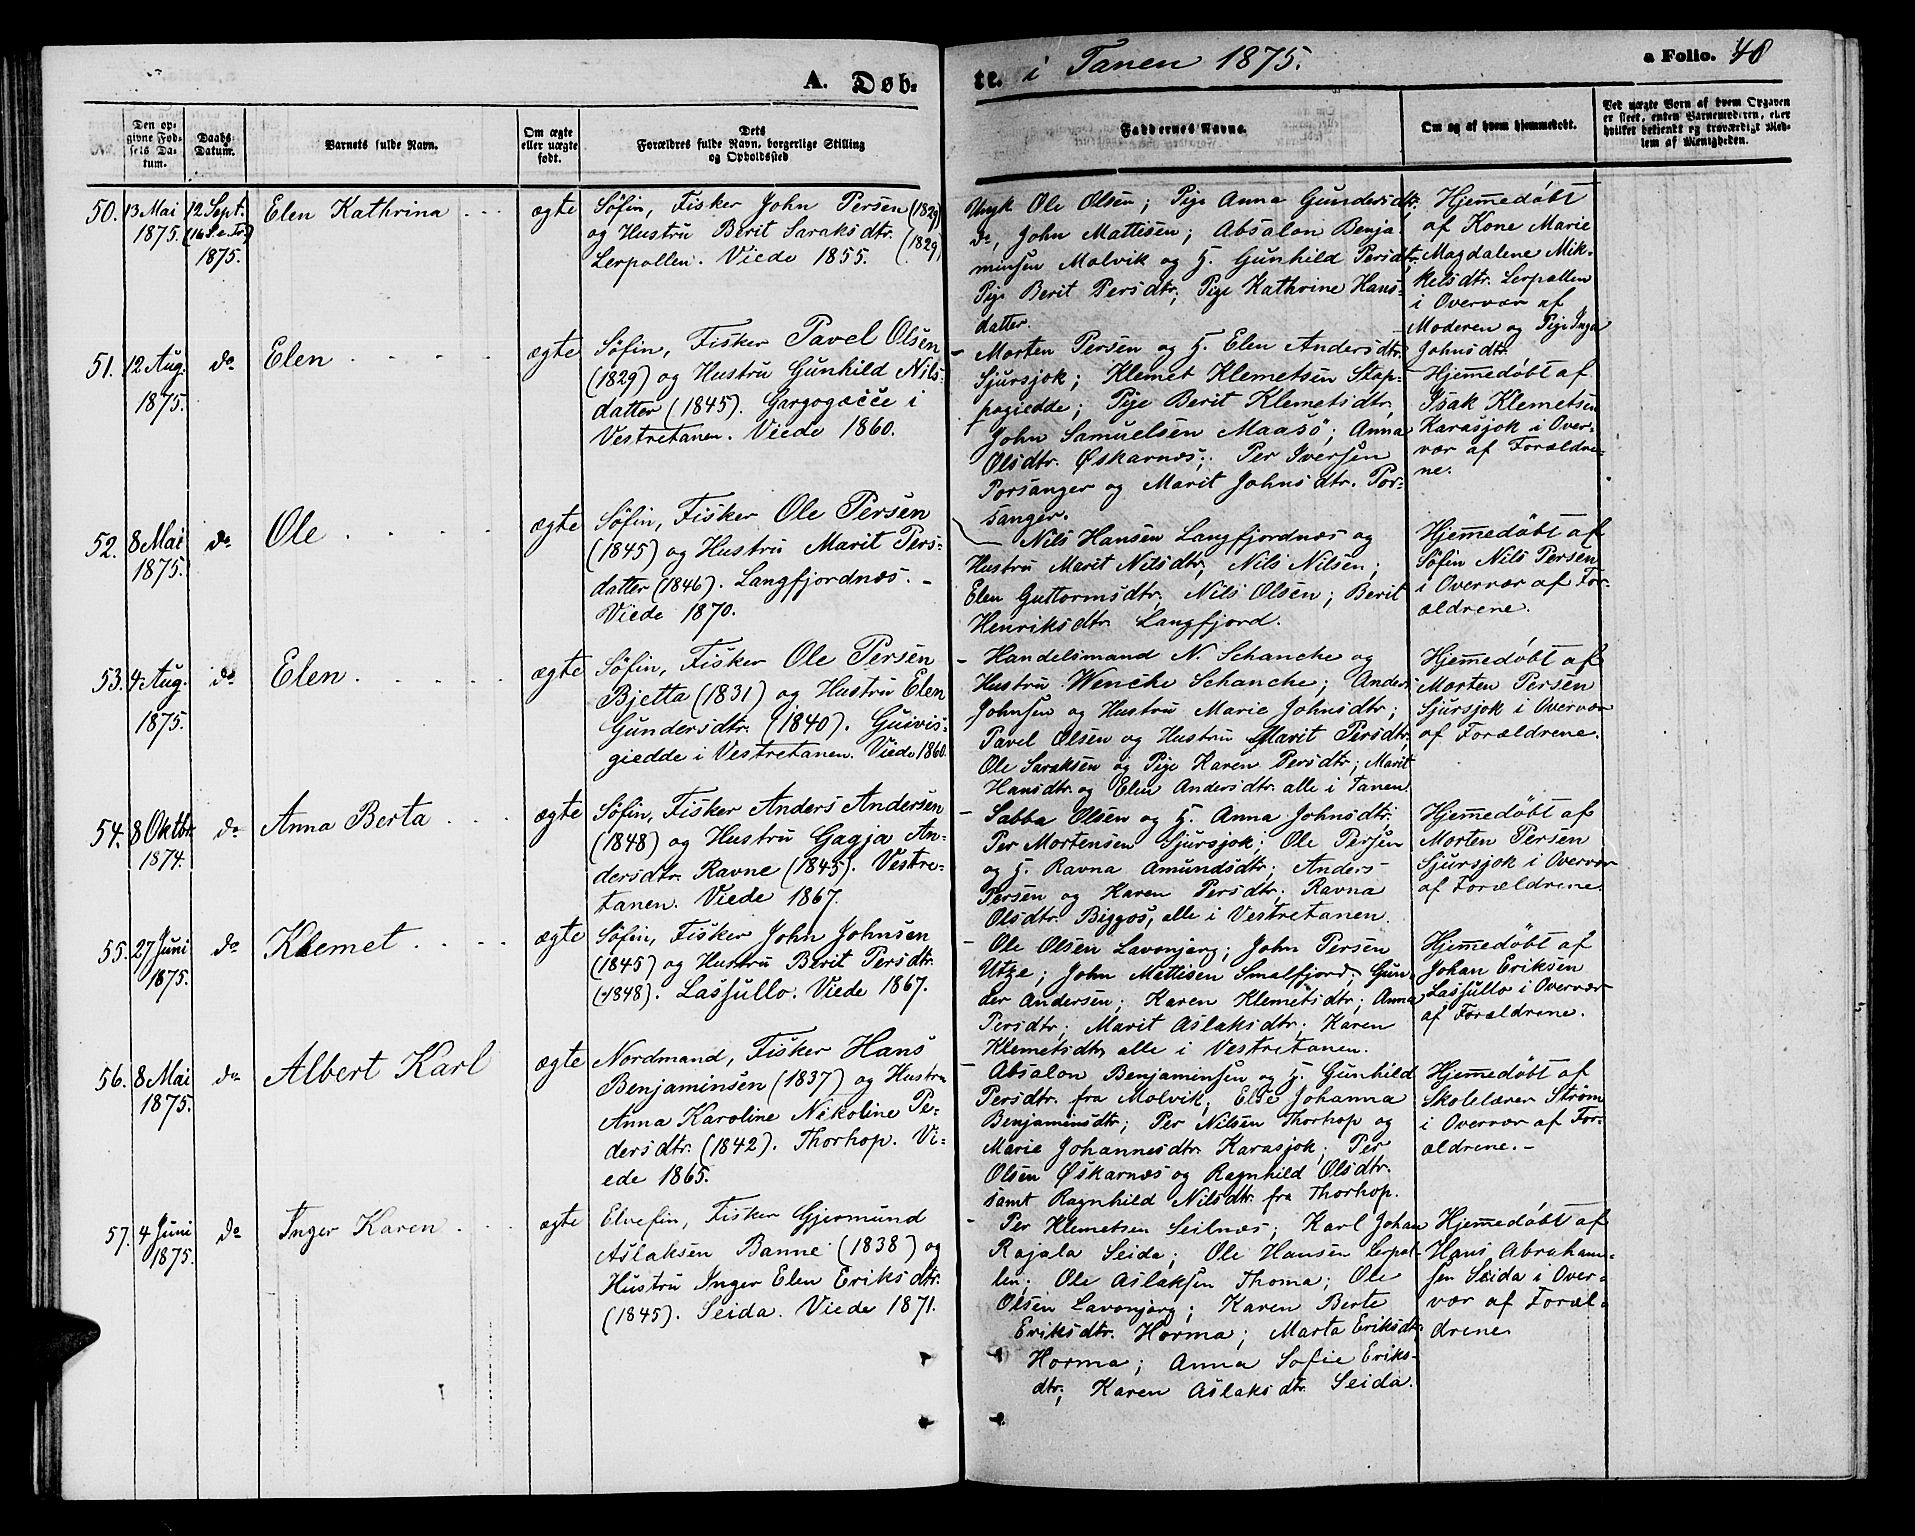 A. Døb-
te. i Tanen 1875.
a Folio. 40
Den op-
givne Fød-
sels Da-
tum.
Daabs
Datum.
Barnets fulde Navn.
Om ægte
eller uægte
født.
Dets
Forældres fulde Navn, borgerlige Stilling
og Opholdssted
Faddernes Navne.
Om og af hvem hjemmedøbt.
Ved uægte Børn af hvem Opgaven
er skeet, enten Barnemoderen, eller
hvilket bekjendt og troværdigt Med-
lem af Menigheden.
50. 13 Mai
1875.
12 Sept.
(16 S. e. Tr.)
1875.
Elen Kathrina
ægte
Søfin, Fisker John Persen (1829)
og Hustru Berit Saraksdtr. (1829)
Lerpollen. Viede 1855.
Ungk Ole Olsen; Pige Anna Gundersdtr,
do, John Mattisen; Absalon Benja-
minsen Molvik og H. Gunhild Persdtr,
Pige Berit Persdtr; Pige Kathrine Hans-
datter.
Hjemmedøbt
af Kone Marie
Magdalene Mik-
kelsdtr. Lerpollen
i Overvær af
Moderen og Pige Inga
Johnsdtr.
51. 12 Aug.
1875.
do
Elen
ægte
Søfin, Fisker Pavel Olsen
(1829) og Hustru Gunhild Nils-
datter (1845). Gargogæčče i
Vestretanen. Viede 1860.
Morten Persen og H. Elen Andersdtr.
Sjursjok; Klemet Klemetsen Stap-
pogiedde; Pige Berit Klemetsdtr,
John Samuelsen Maasö; Anna
Olsdtr. Øskarnæs; Per Iversen
Porsanger og Marit Johnsdtr. Por-
sanger.
Hjemmedøbt af
Isak Klemetsen
Karasjok i Over-
vær af Forældre-
ne.
52. 8 Mai
1875.
do
Ole
ægte
Søfin, Fisker Ole Persen
(1845) og Hustru Marit Pers-
datter (1846). Langfjordnæs.
Viede 1870.
Nils Hansen Langfjordnæs og
Hustru Marit Nilsdtr; Nils Nilsen;
Elen Guttormsdtr, Nils Olsen; Berit
Henriksdtr. Langfjord.
Hjemmedøbt af
Søfin Nils Persen
i Overvær af For-
ældrene.
53. 4 Aug.
1875.
do
Elen
ægte
Søfin, Fisker Ole Persen
Bjetta (1831) og Hustru Elen
Gundersdtr. (1840). Guivis-
giedde i Vestretanen. Viede 1860.
Handelsmand N. Schanche og
Hustru Wencke Schanche; Anders
Johnsen og Hustru Marie Johnsdtr;
Pavel Olsen og Hustru Marit Persdtr,
Ole Saraksen og Pige Karen Persdtr; Marit
Hansdtr. og Elen Andersdtr. alle i Tanen
Hjemmedøbt af
Morten Persen
Sjursjok i Overvær
af Forældrene.
54. 8 Oktbr.
1874.
do
Anna Berta
ægte
Søfin, Fisker Anders Andersen
(1848) og Hustru Gagja An-
dersdtr. Ravne (1845). Vestre-
tanen. Viede 1867.
Sabba Olsen og H. Anna Johnsdtr;
Per Mortensen Sjursjok; Ole Persen
og H. Ravna Amundsdtr; Anders
Persen og Karen Persdtr; Ravna
Olsdtr. Biggos, alle i Vestretanen.
Hjemmedøbt af
Morten Persen
Sjursjok i Overvær
af Forældrene.
55. 27 Juni
1875.
do
Klemet
ægte
Søfin, Fisker John Johnsen
(1845) og Hustru Berit Persdtr.
(1848). Lassullo. Viede 1867.
Ole Olsen Lavonjarg; John Persen
Utze; John Mattisen Smalfjord; Gun-
der Andersen; Karen Klemetsdtr; Anna
Persdtr; Marit Aslaksdtr; Karen
Klemetsdtr, alle i Vestretanen.
Hjemmedøbt af
Johan Eriksen
Lassullo i Overvær
af Forældrene.
56. 8 Mai
1875.
do
Albert Karl
ægte
Nordmand, Fisker Hans
Benjaminsen (1837) og Hustru
Anna Karoline Nikoline Pe-
dersdtr. (1842). Thorhop. Vi-
ede 1865.
Absalon Benjaminsen og H. Gunhild
Persdtr. fra Molvik; Else Johanna
Benjaminsdtr; Per Nilsen Thorhop og
Marie Johannesdtr. Karasjok; Per
Olsen Øskarnæs og Ragnhild Olsdtr.
samt Ragnhild Nilsdtr. fra Thorhop.
Hjemmedøbt af
Skolelærer Strøm
i Overvær af For-
ældrene.
57. 4 Juni
1875.
do
Inger Karen
ægte
Elvefin, Fisker Gjermund
Aslaksen Banne (1838) og
Hustru Inger Elen Eriksdtr.
(1845). Seida. Viede 1871.
Per Klemetsen Seilnæs; Karl Johan
Rajala Seida; Ole Hansen Lerpol-
len; Ole Aslaksen Thoma; Ole
Olsen Lavonjarg; Karen Berte
Eriksdtr. Horma; Marta Eriksdtr.
Horma; Anna Sofie Eriks-
dtr; Karen Aslaksdtr. Seida.
Hjemmedøbt af
Hans Abraham-
sen Seida i Over-
vær af Foræl-
drene